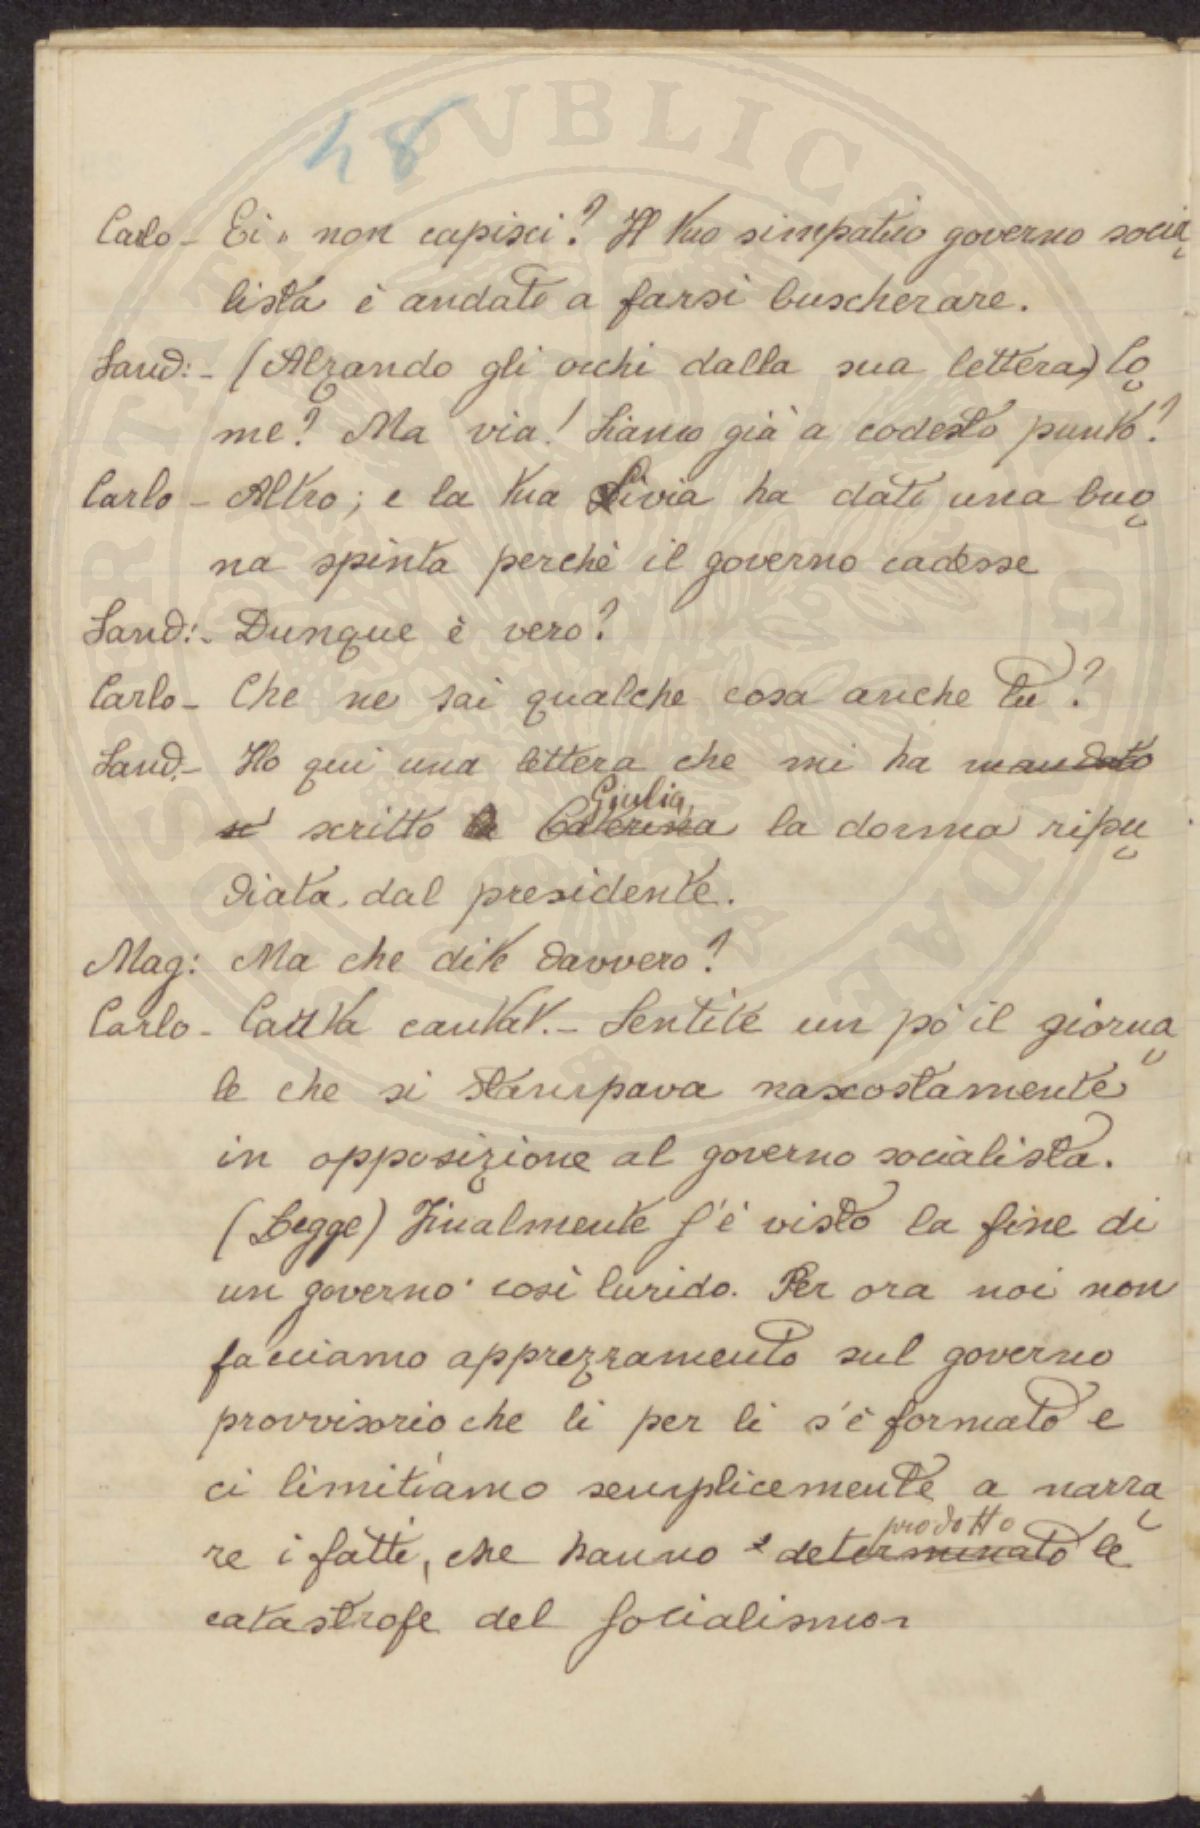 48
Carlo - Ei, non capisci? Il tuo simpatico governo socia
lista è andato a farsi buscherare.
Sand:- (Alzando gli occhi dalla sua lettera) Co
me? Ma via! Siamo già a codesto punto?
Carlo - Altro; e la tua Livia ha dato una buo
na spinta perchè il governo cadesse
Sand:- Dunque è vero?
Carlo - Che ne sai qualche cosa anche tu?
Sand.- Ho qui una lettera che mi ha mandato
scritto la Caterina Giulia, la donna ripu
diata dal presidente.
Mag: Ma che dite davvero?
Carlo - Carta cantat.- Sentite un pò il giorna
le che si stampava nascostamente
in opposizione al governo socialista.
(Legge) Finalmente s'è visto la fine di
un governo così lurido. Per ora noi non
facciamo apprezzamento sul governo
provvisorio che li per li s'è formato e
ci limitiamo semplicemente a narra
re i fatti, che hanno determinato prodotto le
catastrofe del socialismo